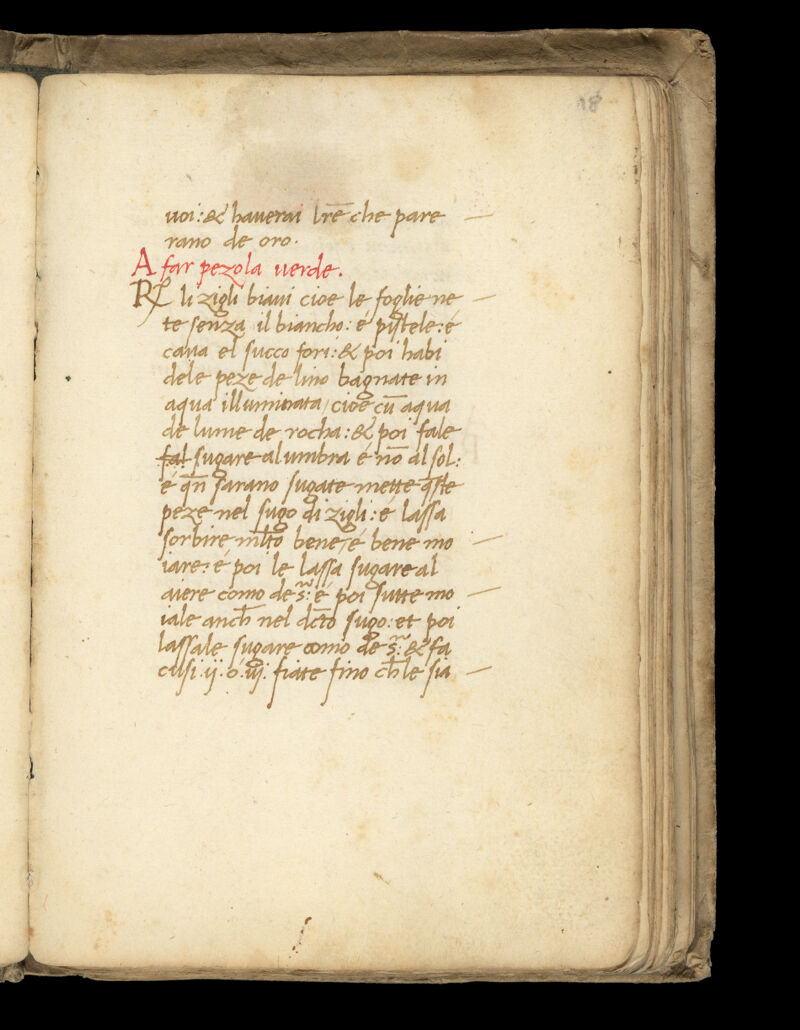 18
uoi: & hauerai lr̃e che pare
rano de oro.
A far pezola uerde.
R̸ li zigli biaui cioe le foglie ne
te senza il biancho: é pistele: é
caua el succo fori: & poi habi
dele peze de lino bagnate in
aqua illuminata, cioe cũ aqua
de lume de rocha: & poi fale
fal sugare al umbra é nõ al sol:
é qñ sarano sugate mette q̃ste
peze nel sugo di zigli: é lassa
sorbire ml̃to bene, é bene mo
iare: é poi le lassa sugare al
aiere como de s.ª é poi sutte mo
iale anch̃ nel dc̃to sugo: et poi
lassale sugare como de s.ª & fa
cusi .ij. o .iij. fiate fino ch̃ le sia